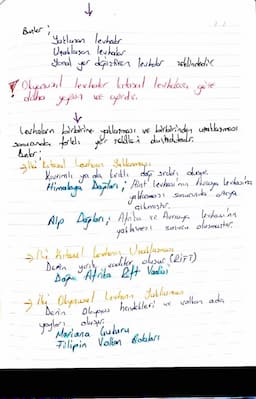 Bunlar;
Yaklaşan levhalar
Uzaklaşan levhalar
Yanal yer değiştiren levhalar şeklindedir
! Okyanusal levhalar kıtasal levhalara göre
daha yoğun ve ağırdır.
Levhaların birbirine yaklaşması ve birbirinden uzaklaşması
sonucunda farklı yer şekilleri oluşmaktadır.
Bunlar;
→ İki kıtasal Levhanın Yaklaşması
Kıvrımlı ya da kırıklı dağ sıraları oluşur.
Himalaya Dağları; Hint Levhası'nın Avrasya Levhası'na
yaklaşması sonucunda ortaya
çıkmıştır.
Alp Dağları; Afrika ve Avrasya levhası'nın
yaklaşması sonucu oluşmuştur.
→ İki Kıtasal Levhanın Uzaklaşması
Derin yarık vadiler oluşur (RİFT)
Doğu Afrika Rift Vadisi
→ İki Okyanusal Levhanın Yaklaşması
Derin Okyanus hendekleri ve volkan ada
yayları oluşur.
Mariana Çukuru
Filipin Volkan Adaları